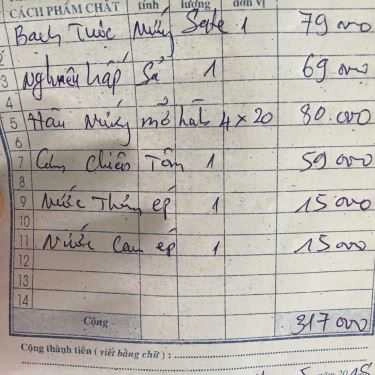 CÁCH PHẨM CHẤT tính lượng đơn vị
Bạch Tuộc Nướng Sate 1 79 000
3 Nghêu hấp Sả 1 69 000
4
5 Hàu Nướng mỡ hành 4 x 20 80.000
6
7 Cơm chiên Tôm 1 59 000
8
9 Nước Thơm ép 1 15 000
10
11 Nước Cam ép 1 15 000
12
13
14
Cộng 317 000
Cộng thành tiền ( viết bằng chữ ) :
5 năm 2018